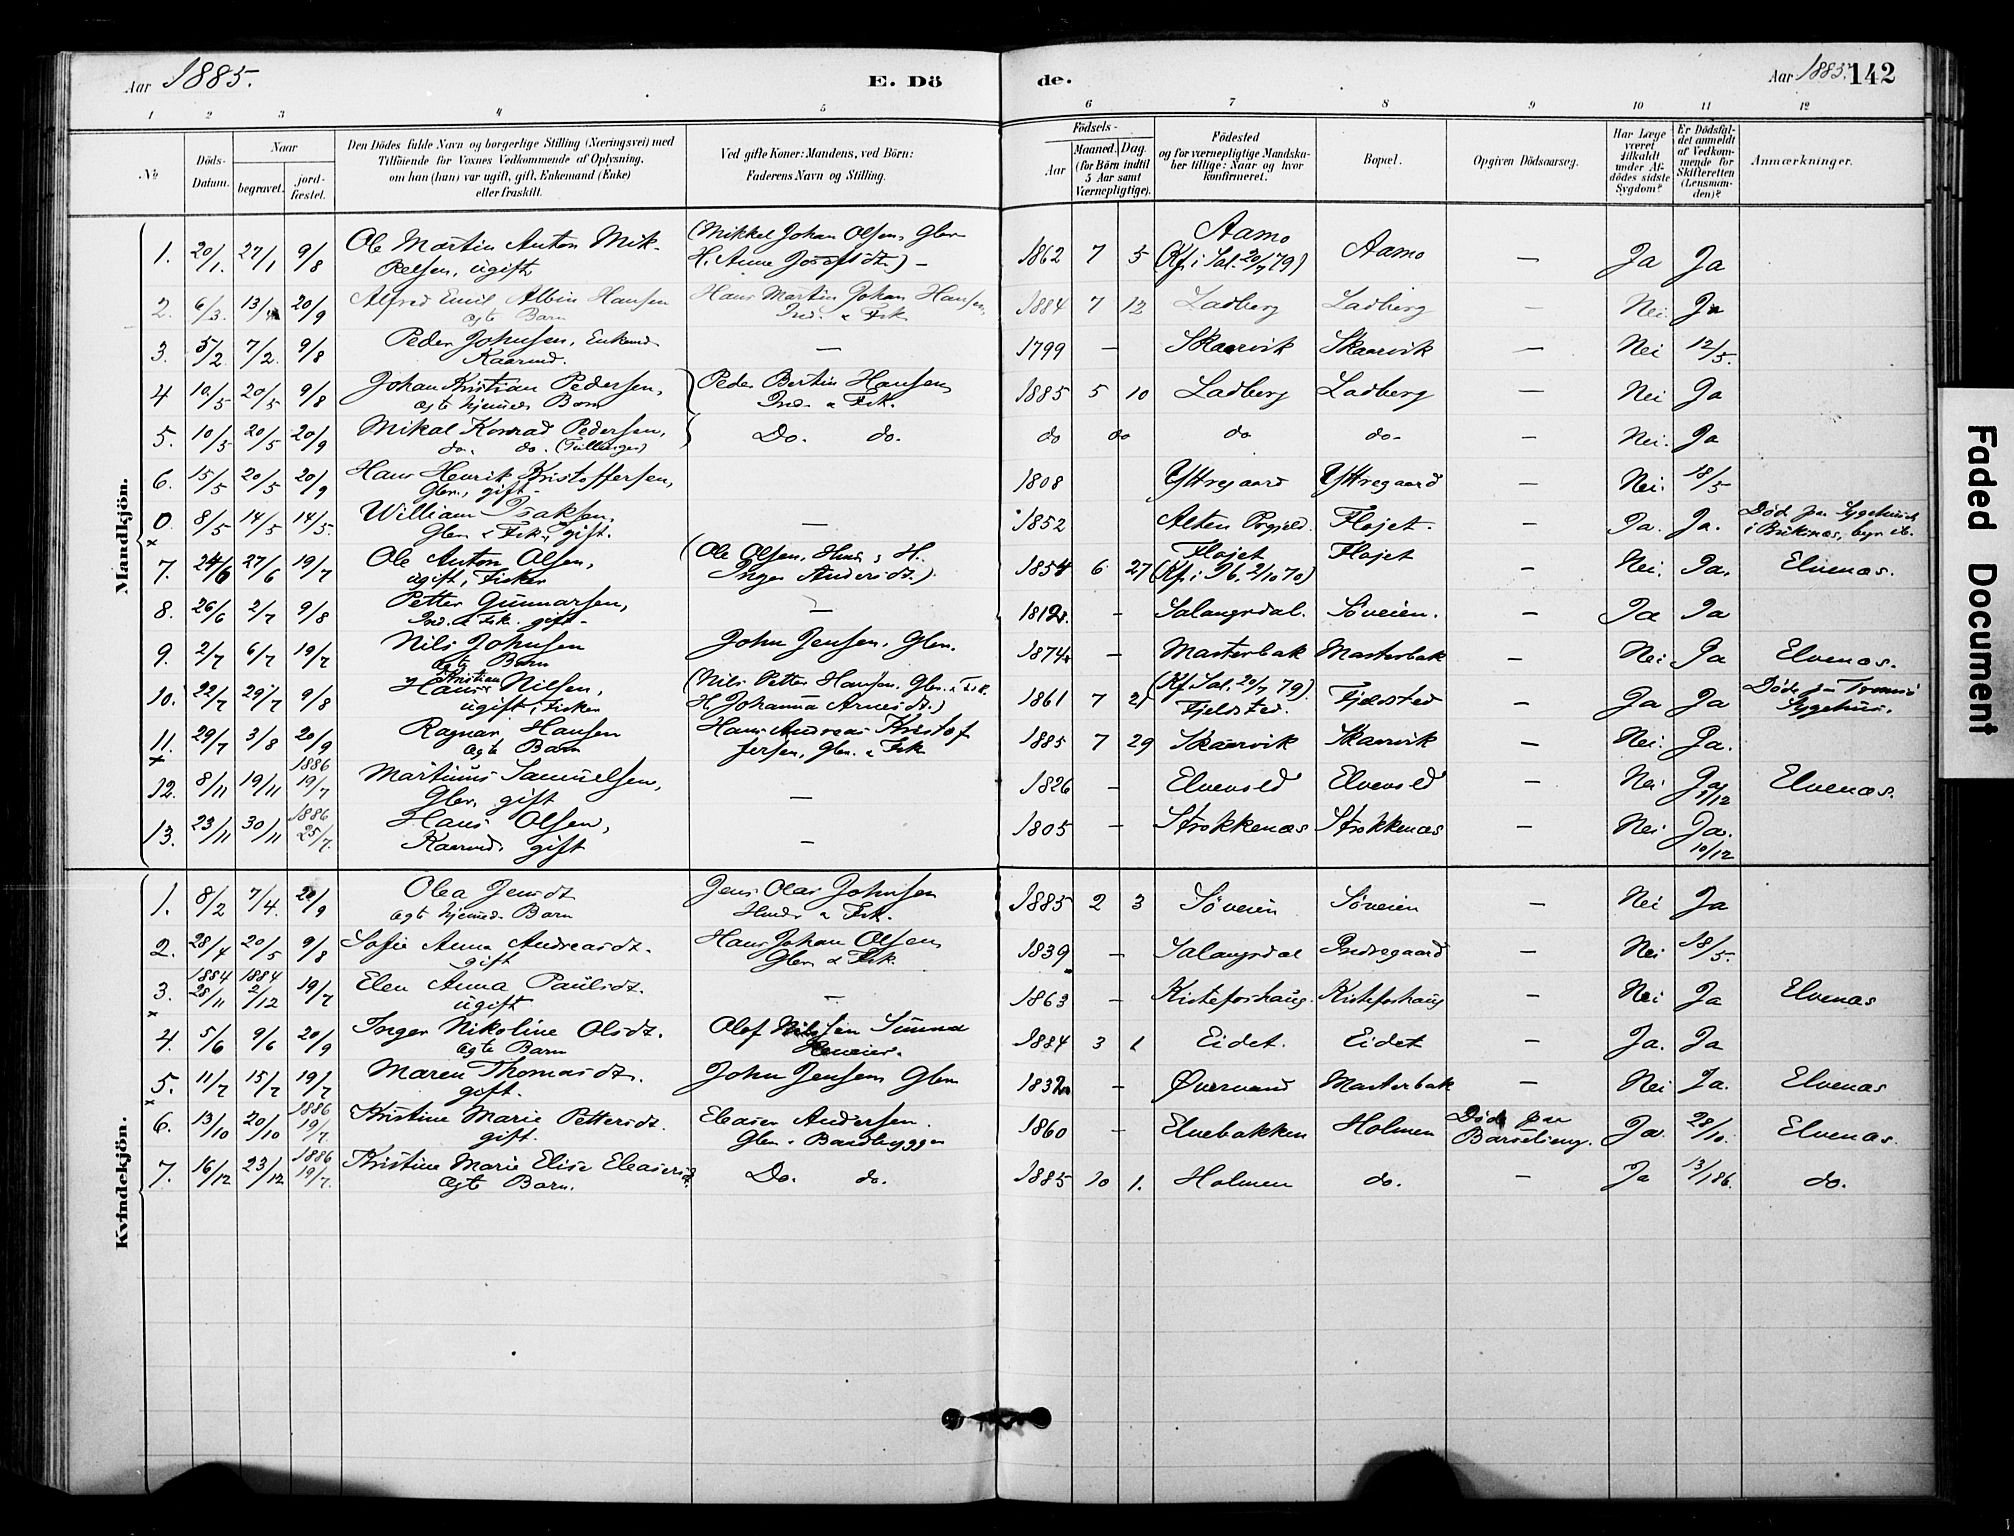 Aar 1885.
E. Dö
de.
Aar 1885.
142
1 2 3 4 5 6 7 8 9 10 11 12
No
Döds-Datum.
Naar
begravet.
jord-fæstet.
Den Dödes fulde Navn og borgerlige Stilling (Næringsvei) med
Tilföiende for Voxnes Vedkommende af Oplysning,
om han (hun) var ugift, gift, Enkemand (Enke)
eller fraskilt.
Ved gifte Koner: Mandens, ved Börn:
Faderens Navn og Stilling.
Födsels-
Aar
Maaned. Dag.
(for Börn indtil
5 Aar samt
Værnepligtige).
Födested
og for værnepligtige Mandska-
ber tillige: Naar og hvor
konfirmeret.
Bopæl.
Opgiven Dödsaarsag.
Har Læge
været
tilkaldt
under Af-
dödes sidste
Sygdom?
Er Dödsfal-
det anmeldt
af Vedkom-
mende for
Skifteretten
(Lensman-
den)?
Anmærkninger.
Mandkjön.
1. 20/1. 27/1 9/8 Ole Martin Anton Mik- (Mikkel Johan Olsen, Gbr. 1862 7 5 Aamo Aamo — Ja Ja
kelsen, ugift H. Anne Josefsdt.) — (Kf. i Sal. 20/7 79)
2. 6/3. 13/4 20/9 Alfred Emil Albin Hansen Hans Martin Johan Hansen 1884 7 12 Ladberg Ladberg — Nei. Ja
ægte Barn Ind. & Fisk.
3. 5/2 7/2. 9/8 Peder Johnsen, Enkemd. — 1799 — Skaarvik Skaarvik — Nei 12/5.
Kaarmd.
4 10/5 20/5 9/8 Johan Kristian Pedersen, Peder Bertin Hansen 1885 5 10 Ladberg Ladberg — Nei Ja
ægte hjemmed. Barn Ind. & Fisk.
5. 10/5 20/5 20/9 Mikal Konrad Pedersen, Do. do. do do do do — Nei. Ja
do. do. (Tvillinger)
6. 15/5 20/5 20/9 Hans Henrik Kristoffersen, 1808 Yttregaard Yttregaard — Nei. 18/5
Gbr., gift —
0. 8/5 14/5 14/5. William Isaksen, — 1852 Alten Prgjeld. Fløjet. — Ja. Ja. Død paa Sygehuset
Gbr. & Fisk., gift.
7. 24/6 27/6 19/7 Ole Anton Olsen, (Ole Olsen, Husm., H. 1854 6 27 Fløjet Fløjet — Nei. Ja. Elvenæs.
ugift, Fisker Inger Andersdt.) (Kf. i Ib. 2/10 70)
8. 26/6 2/7 9/8 Petter Gunnarsen, — 1812 — Salangsdal. Søveien. — Ja Ja
Ind. & Fisk. gift —
9. 2/7 6/7 19/7 Nils Johnsen John Jensen, Gbr. 1874 — Marterbak Marterbak — Nei Ja Elvenæs.
ægte Barn
10. 22/7 29/7 9/8 Hans Kristian Nilsen, (Nils Petter Hansen, Gbr. & Fisk. 1861 7 21 (Kf. i Sal. 20/7 79). Fjeldsted — Ja Ja Døde paa Tromsø
ugift, Fisker H. Johanna Arnesdt.) Fjeldsted. Sygehus.
11. 29/7 3/8 20/9 Ragnar Hansen Hans Andreas Kristof 1885 7 29 Skaarvik Skaarvik — Nei. Ja.
ægte Barn fersen, Gbr. & Fisk
12. 8/11 19/11 1886 19/7 Martinus Samuelsen, — 1826 — Elvevold Elvevold — Nei Ja 1/12 Elvenæs.
Gbr. gift
13. 23/11 30/11 1886 25/7. Hans Olsen, — 1805 — Strokkenæs Strokkenæs — Nei Ja. 10/12
Kaarmd. gift
Kvindekjön.
1. 8/2 7/4. 20/9 Olea Jensdt Jens Olai Johnsen 1885 2 3 Søveien Søveien — Nei Ja
ægte hjemmed. Barn Husm. & Fisk.
2. 28/4 20/5 9/8 Sofie Anna Andreasdt. Hans Johan Olsen 1839 — Salangsdal Indregaard — Nei 18/5.
gift Gbr. & Fisk.
3. 1884 28/11 1884 2/12 19/7 Elen Anna Paulsdt. — 1863 — Kisteforshaug. Kisteforshaug — Nei Ja Elvenæs
ugift
4. 5/6 9/6 20/9 Inger Nikoline Olsdt. Olof Nilssen 1884 3 1 Eidet. Eidet — Ja. Ja
ægte Barn
5. 11/7 15/7 19/7 Maren Thomasdt. John Jensen Gbr. 1832 — Øvervand Marterbak — Nei Ja. Elvenæs
gift.
6. 13/10 20/10 1886 19/7. Kristine Marie Pettersdt. Eleaser Andersen. 1860 — Elvebakken Holmen Døde paa Ja. 28/10. Elvenæs.
gift. Gbr. & Baadbygger Barselseng.
7. 16/12 23/12 1886 19/7. Kristine Marie Elise Eleasersdt. Do. do. 1885 10 1. Holmen do. — Ja 13/1 86. do.
ægte Barn.
Faded Document